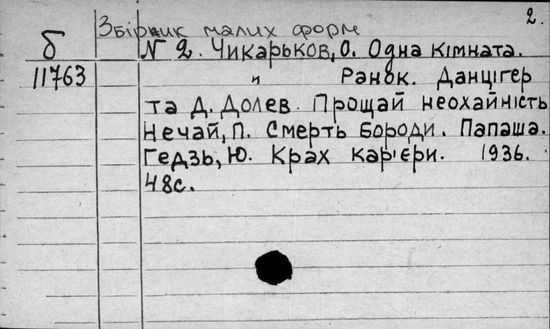 2.
Збірник малих форм
б № 2. Чикарьков, О. Одна кімната.
11763 " Ранок. Данцігер
та Д. Долев. Прощай неохайність
Нечай, П. Смерть бороди. Папаша.
Гедзь, Ю. Крах кар'єри. 1936.
48с.